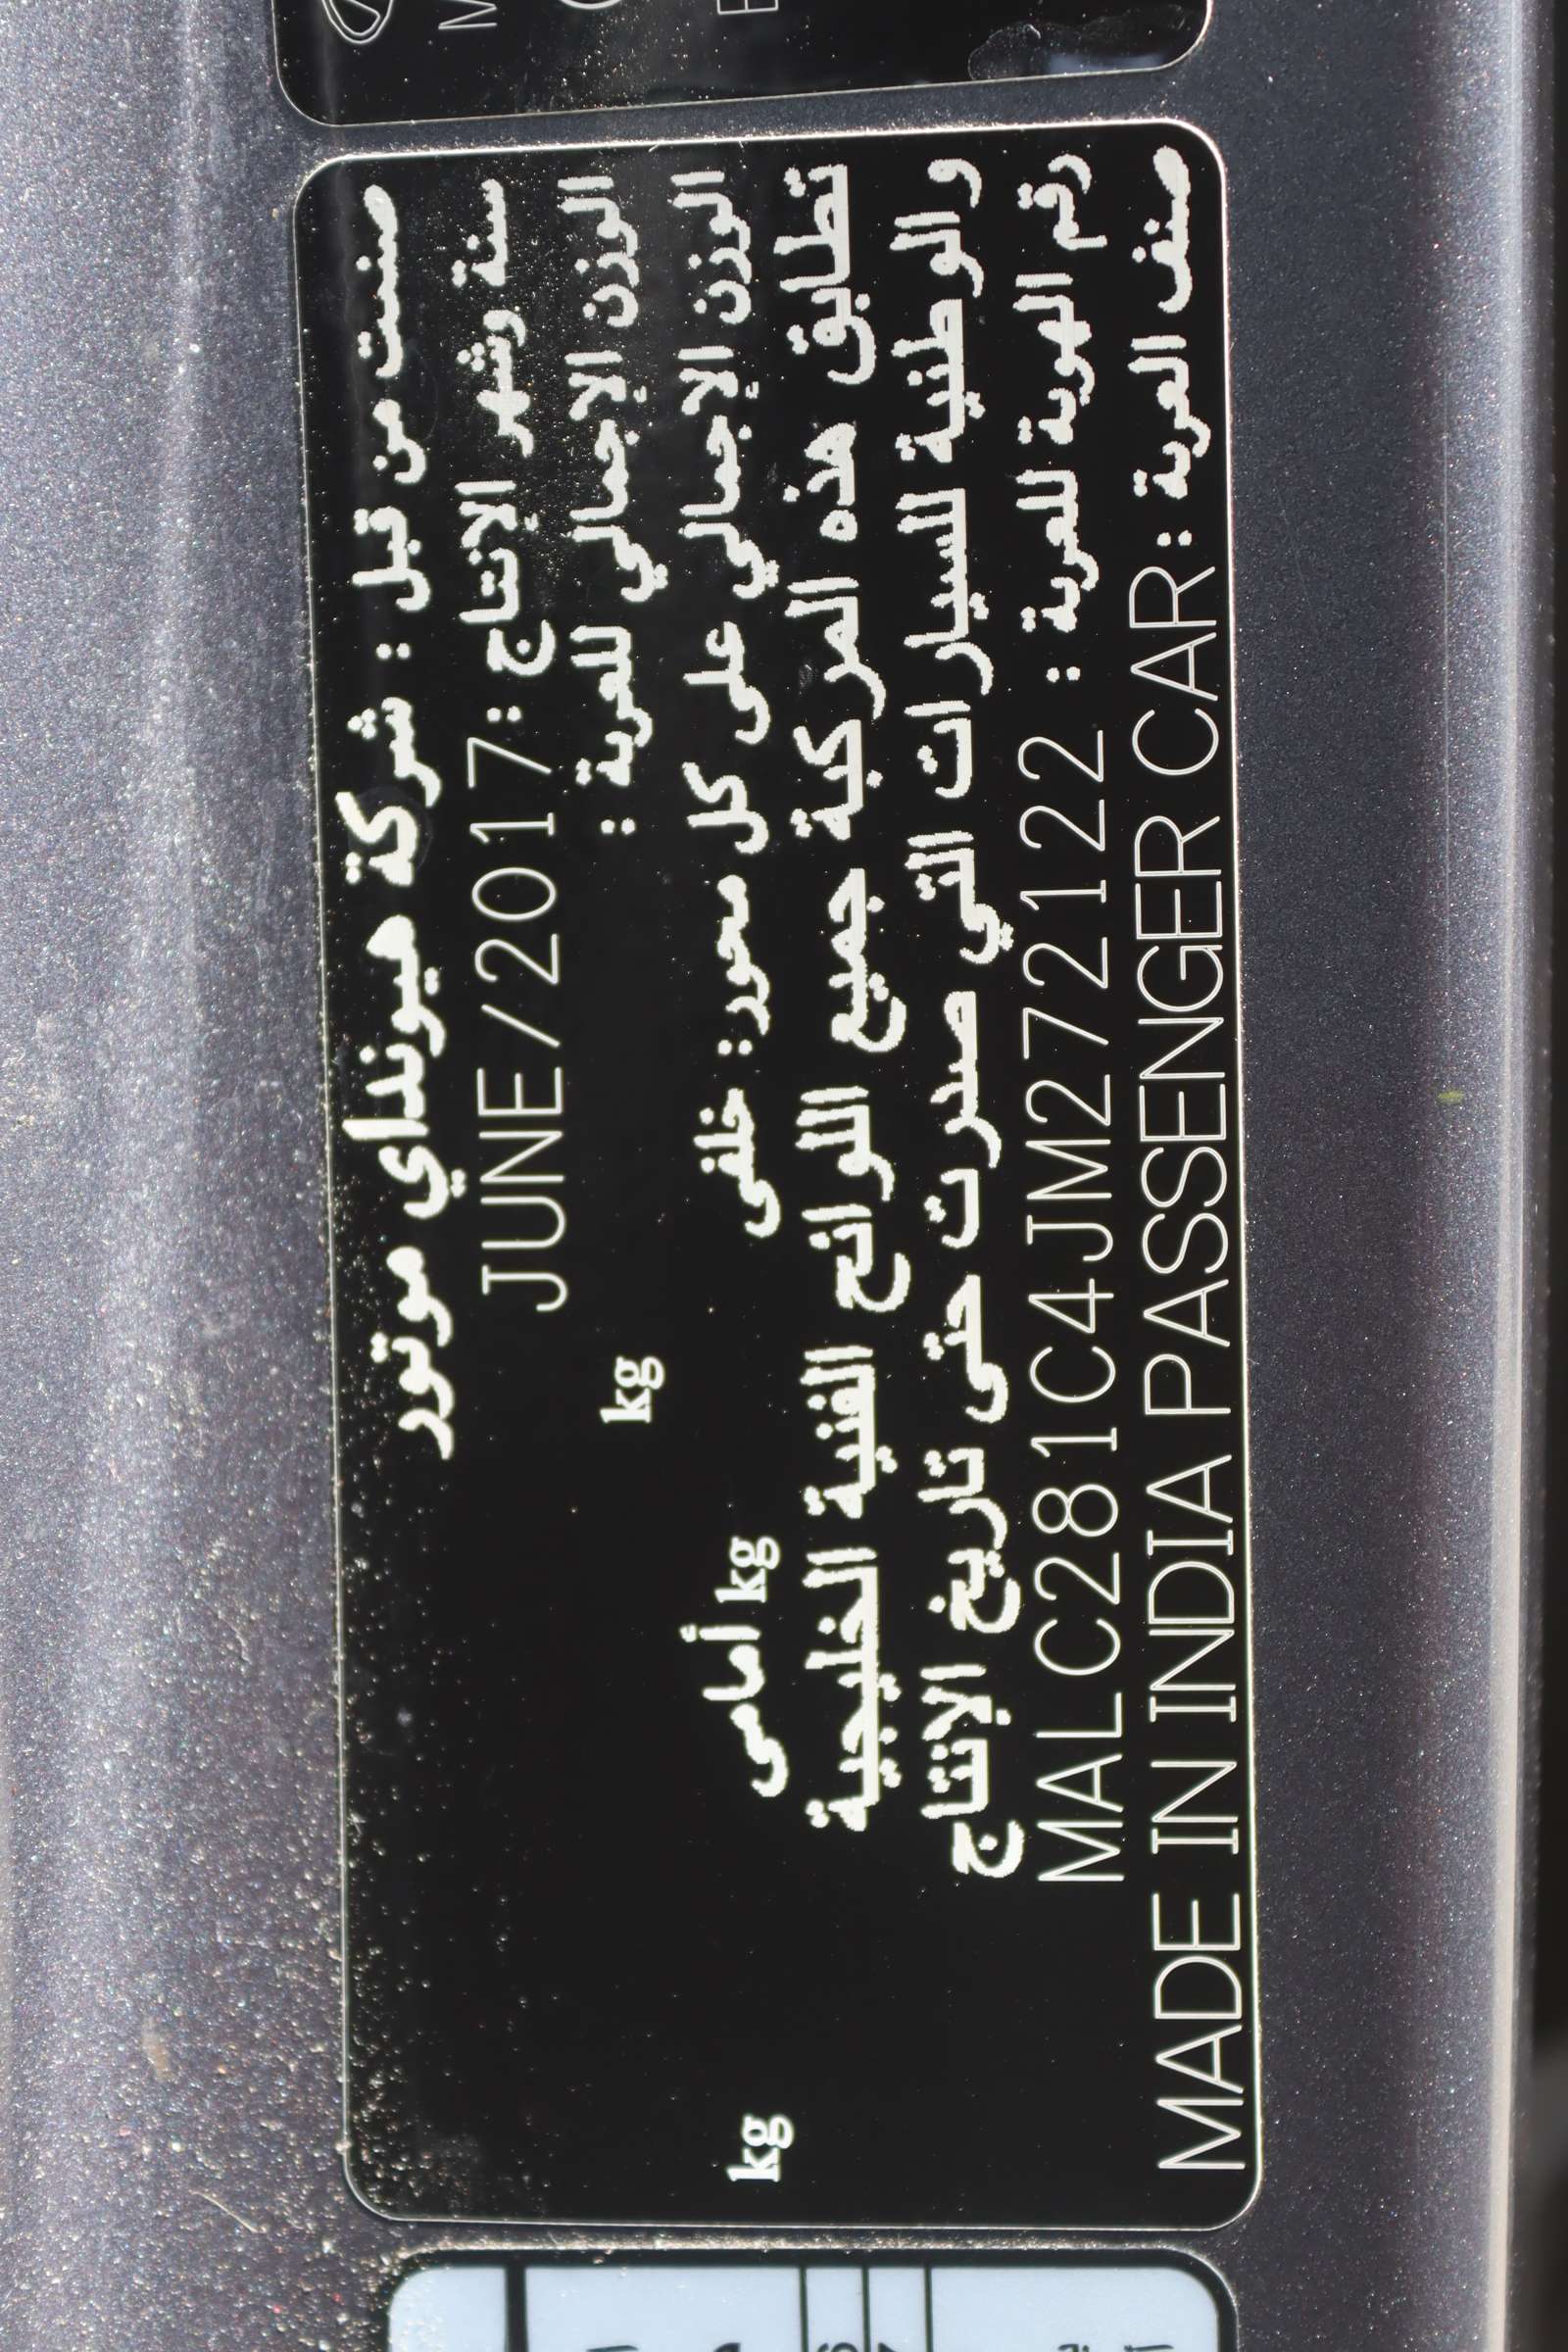 صنعت من قبل : شركة هيونداي موتور
سنة وشهر الإنتاج : JUNE/2017
الوزن الإجمالي للعربة : kg
الوزن الإجمالي على كل محور: خلفى kg أمامى kg
تطابق هذه المركبة جميع اللوائح الفنية الخليجية
والوطنية للسيارات التي صدرت حتى تاريخ الإنتاج
رقم الهوية للعربة : MALC281C4JM272122
صنف العربة : MADE IN INDIA PASSENGER CAR